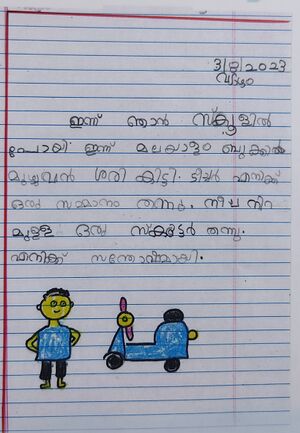 3/8/2023
വ്യാഴം
ഇന്ന് ഞാൻ സ്കൂളിൽ
പോയി. ഇന്ന് മലയാളം ബുക്കിൽ
മുഴുവൻ ശരി കിട്ടി. ടീച്ചർ എനിക്ക്
ഒരു സമ്മാനം തന്നു. നീല നിറ
മുള്ള ഒരു സ്കൂട്ടർ തന്നു.
എനിക്ക് സന്തോഷമായി.